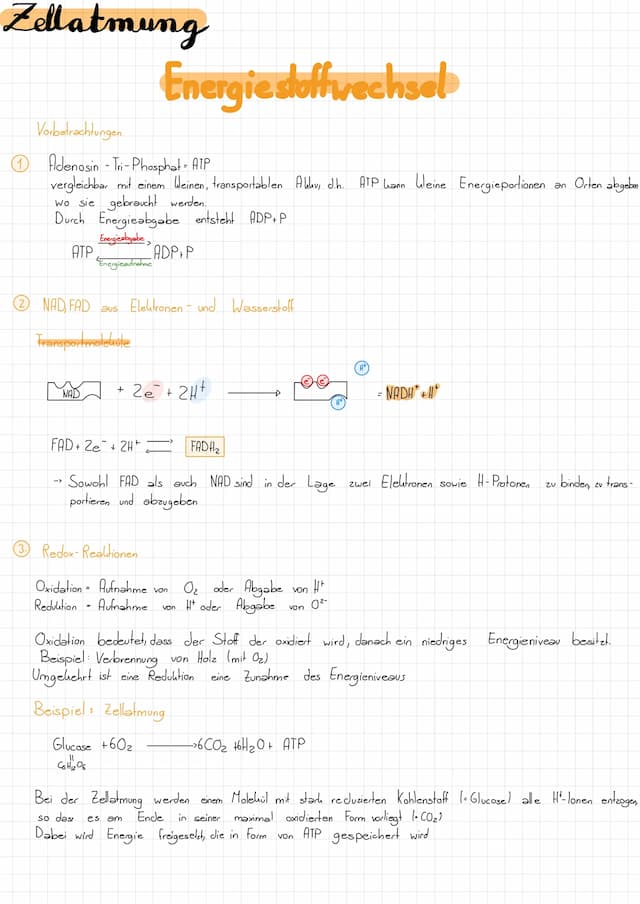 Zellatmung
Energiestoffwechsel
Vorbetrachtungen
① Adenosin - Tri-Phosphat = ATP
vergleichbar mit einem kleinen, transportablen Akku, d.h. ATP kann kleine Energieportionen an Orten abgeben
wo sie gebraucht werden.
Durch Energieabgabe entsteht ADP+P
Energieabgabe
ATP ADP+P
Energieaufnahme
② NAD/FAD aus Elektronen- und Wasserstoff
Transportmoleküle
NAD + 2e⁻ + 2H⁺ → e⁻ e⁻ H⁺ H⁺ = NADH⁺ + H⁺
FAD + 2e⁻ + 2H⁺ ⇌ FADH₂
→ Sowohl FAD als auch NAD sind in der Lage zwei Elektronen sowie H-Protonen zu binden, zu trans-
portieren und abzugeben
③ Redox-Reaktionen
Oxidation = Aufnahme von O₂ oder Abgabe von H⁺
Reduktion = Aufnahme von H⁺ oder Abgabe von O²⁻
Oxidation bedeutet, dass der Stoff der oxidiert wird, danach ein niedriges Energieniveau besitzt.
Beispiel: Verbrennung von Holz (mit O₂)
Umgekehrt ist eine Reduktion eine Zunahme des Energieniveaus
Beispiel: Zellatmung
Glucose + 6O₂ → 6CO₂ + 6H₂O + ATP
C₆H₁₂O₆
Bei der Zellatmung werden einem Molekül mit stark reduzierten Kohlenstoff (= Glucose) alle H⁺-Ionen entzogen,
so dass es am Ende in seiner maximal oxidierten Form vorliegt (= CO₂)
Dabei wird Energie freigesetzt, die in Form von ATP gespeichert wird